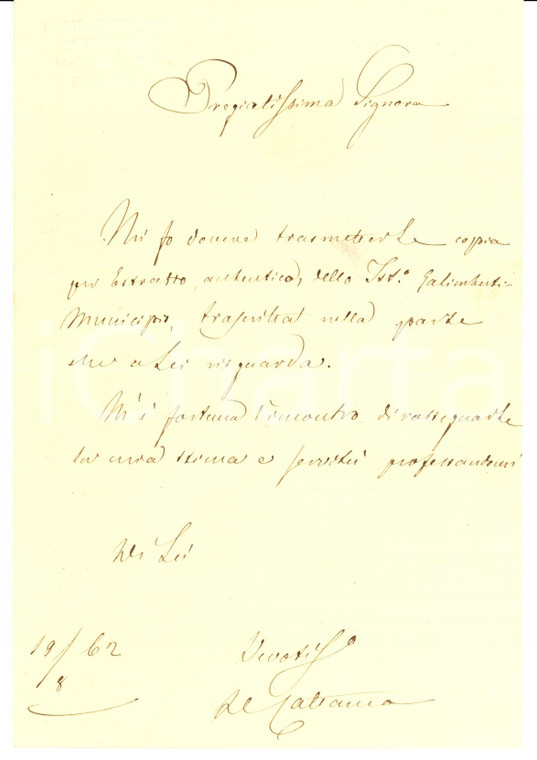 Pregiatissima Signora
Mi fo dovere trasmetterLe copia
per Estratto, autentica, dello Ist.o Galimberti-
Municipio, trascritta nella parte
che a Lei risguarda.
M'è fortuna l'incontro di rassegnarLe
la mia stima e servitù professandomi
Di Lei
19/8 62
Devotiss.o